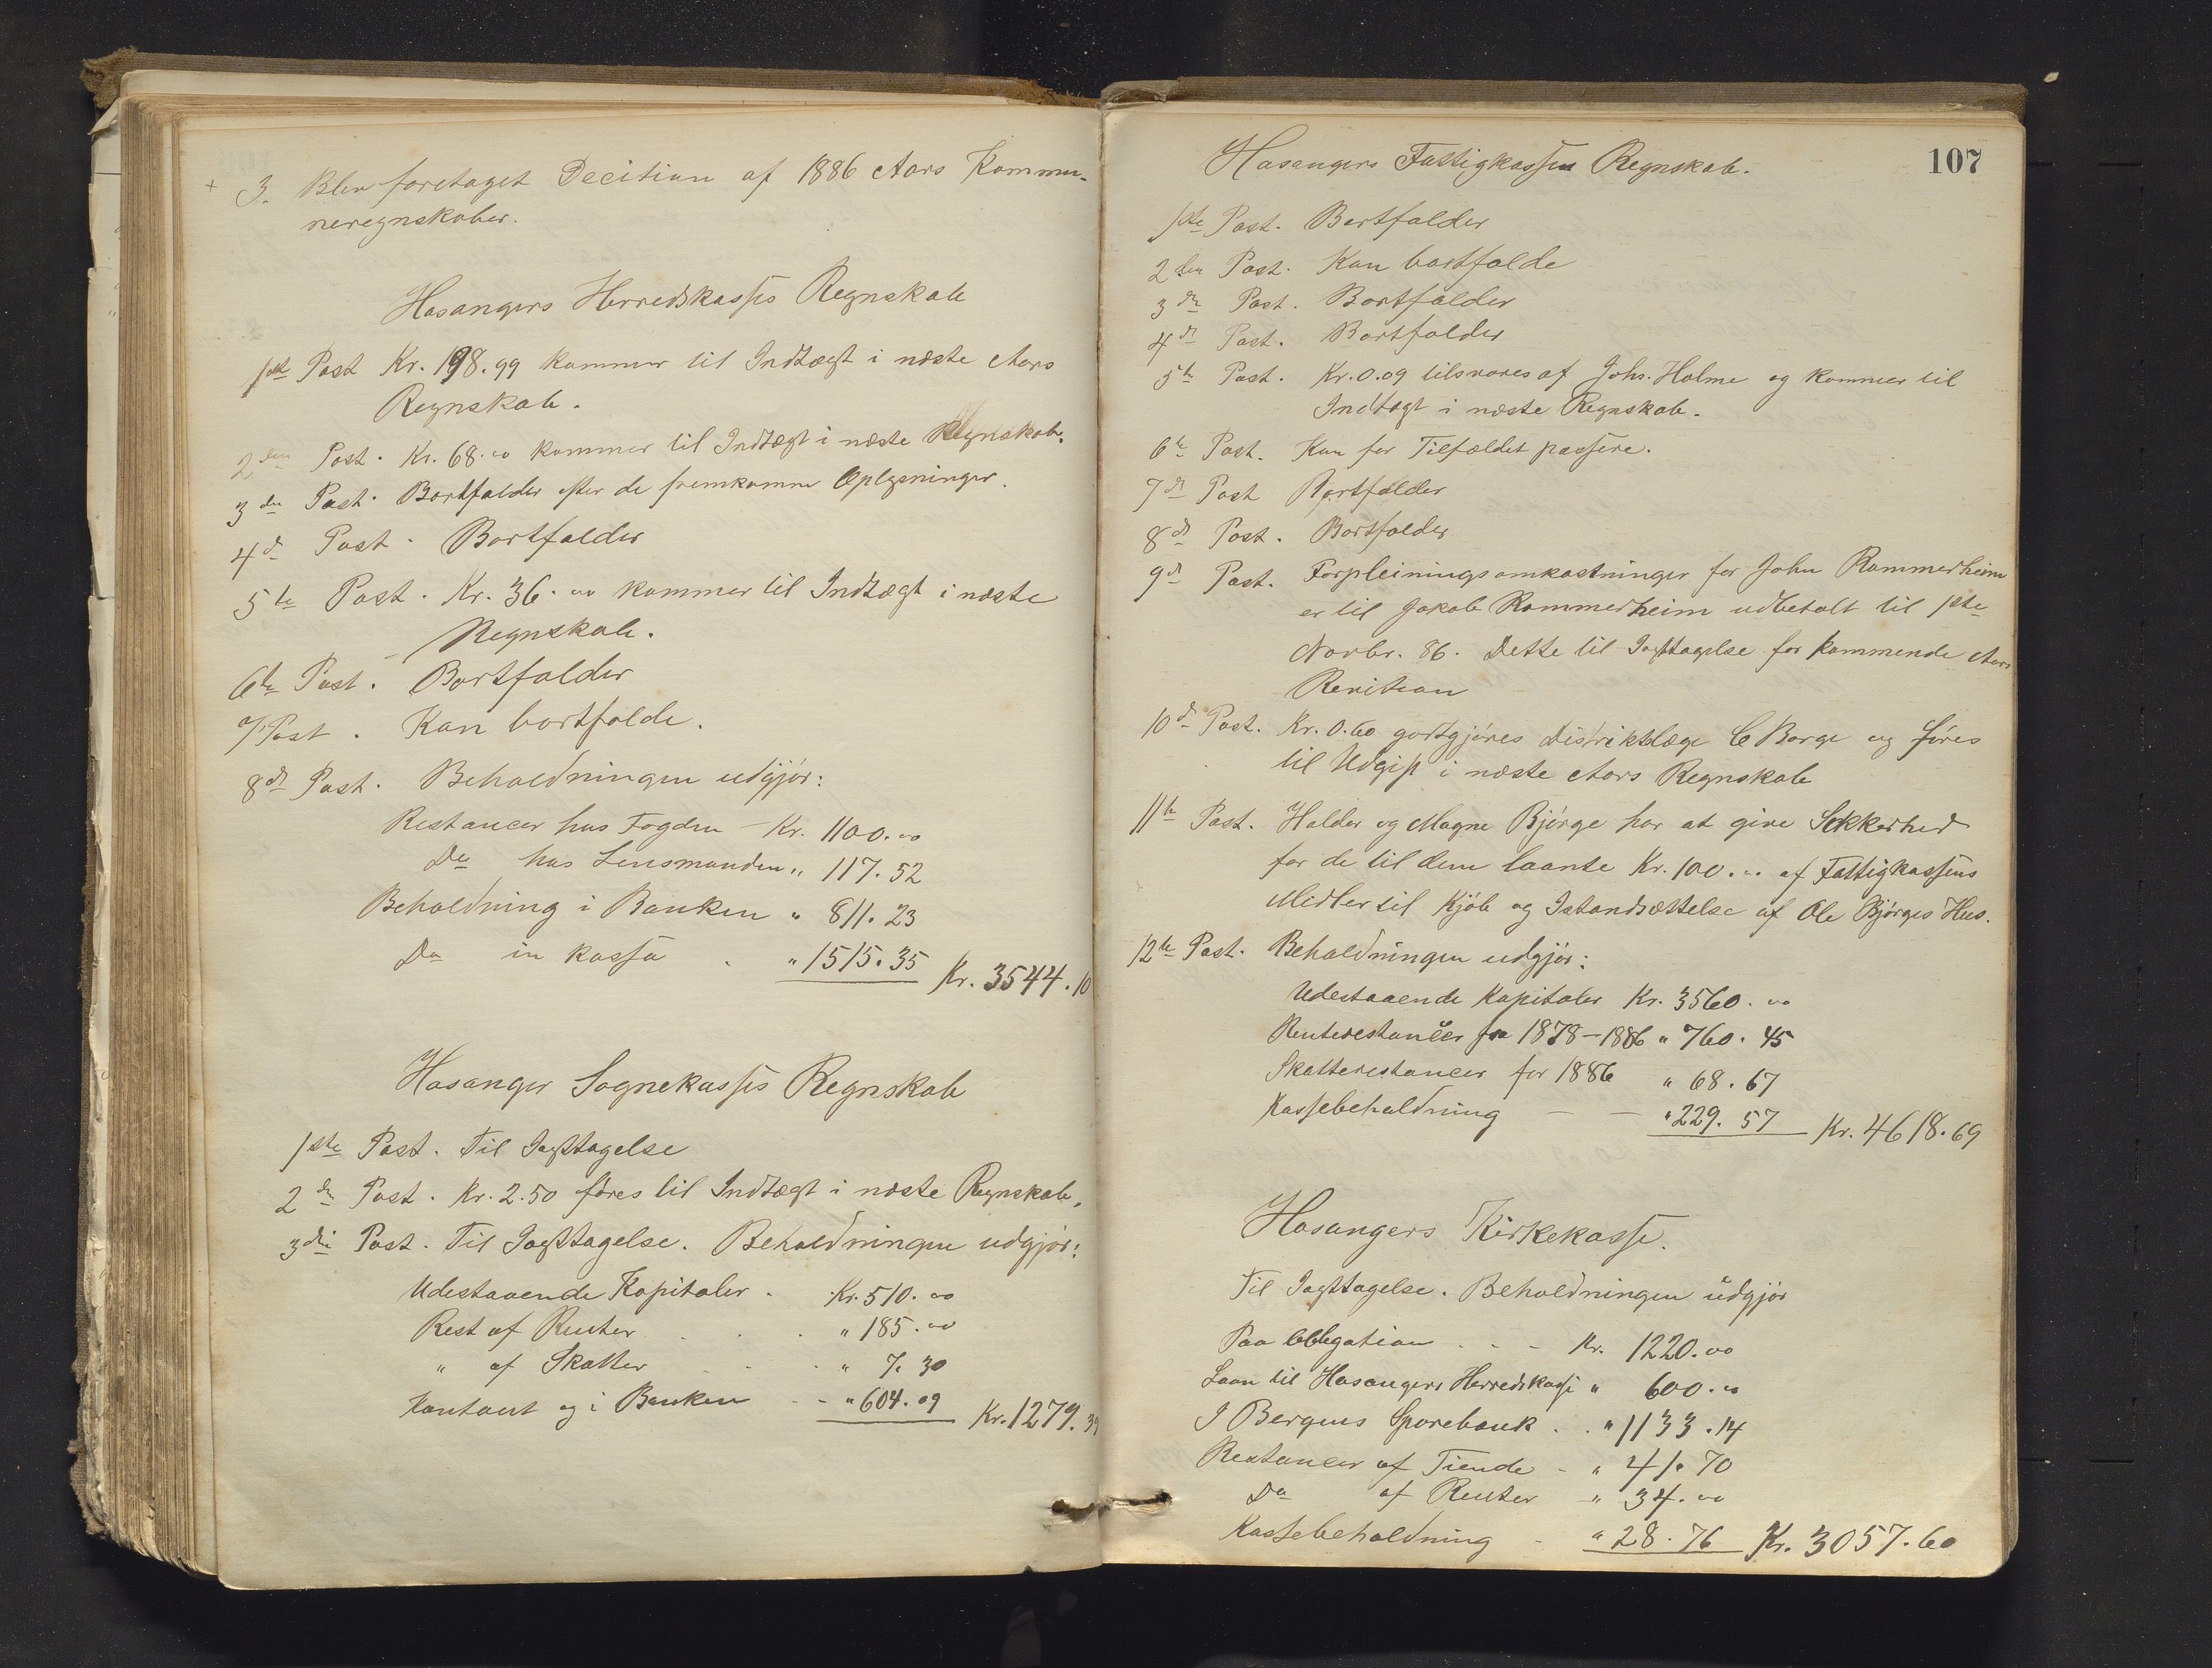 + 3. Blev foretaget Decition af 1886 Aars Kommu-
neregnskaber.
Hosangers Herredskasses Regnskab
1ste Post Kr. 198.99 kommer til Indtægt i næste Aars
Regnskab.
2den Post. Kr. 68.00 kommer til Indtægt i næste Regnskab.
3die Post. Bortfalder efter de fremkomne Oplysninger.
4de Post. Bortfalder
5te Post. Kr. 36.00 kommer til Indtægt i næste
Regnskab.
6te Post. Bortfalder
7 Post. Kan bortfalde.
8de Post. Beholdningen udgjør:
Restancer hos Fogden - Kr. 1100.00
Do hos Lensmanden " 117.52
Beholdning i Banken " 811.23
Do in kassa . " 1515.35 Kr. 3544.10
Hosanger Sognekasses Regnskab
1ste Post. Til Iagttagelse
2den Post. Kr. 2.50 føres til Indtægt i næste Regnskab.
3die Post. Til Iagttagelse. Beholdningen udgjør:
Udestaaende Kapitaler . Kr. 510.00
Rest af Renter . . . " 185.00
" af Skatter - - . " 7.30
Kontant og i Banken - - " 604.09 Kr. 1279.39
107
Hosangers Fattigkasses Regnskab.
1ste Post. Bortfalder
2den Post. Kan bortfalde
3die Post. Bortfalder
4de Post. Bortfalder
5te Post. Kr. 0.09 tilsvares af Johs. Holme og kommer til
Indtægt i næste Regnskab.
6te Post. Kan for Tilfældet passere.
7de Post Bortfalder
8de Post. Bortfalder
9de Post. Forpleiningsomkostninger for John Rommerheim
er til Jakob Rommerheim udbetalt til 1ste
Novbr. 86. Dette til Iagttagelse for kommende Aars
Revition
10de Post. Kr. 0.60 godtgjøres Distriktslæge C Borge og føres
til Udgift i næste Aars Regnskab
11te Post. Haldor og Magne Bjørge har at give Sikkerhed
for de til dem laante Kr. 100.00 af Fattigkassens
Midler til Kjøb og Istandsættelse af Ole Bjørges Hus.
12te Post. Beholdningen udgjør:
Udestaaende Kapitaler Kr. 3560.00
Renterestancer fra 1878-1886 " 760.45
Skatterestancer for 1886 " 68.67
Kassebeholdning - - " 229.57 Kr. 4618.69
Hosangers Kirkekasse.
Til Iagttagelse. Beholdningen udgjør
Paa Obligation . - - Kr. 1220.00
Laan til Hosangers Herredskasse " 600.00
I Bergens Sparebank . . " 1133.14
Restancer af Tiende - " 41.70
Do af Renter - " 34.00
Kassebeholdning - " 28.76 Kr. 3057.60